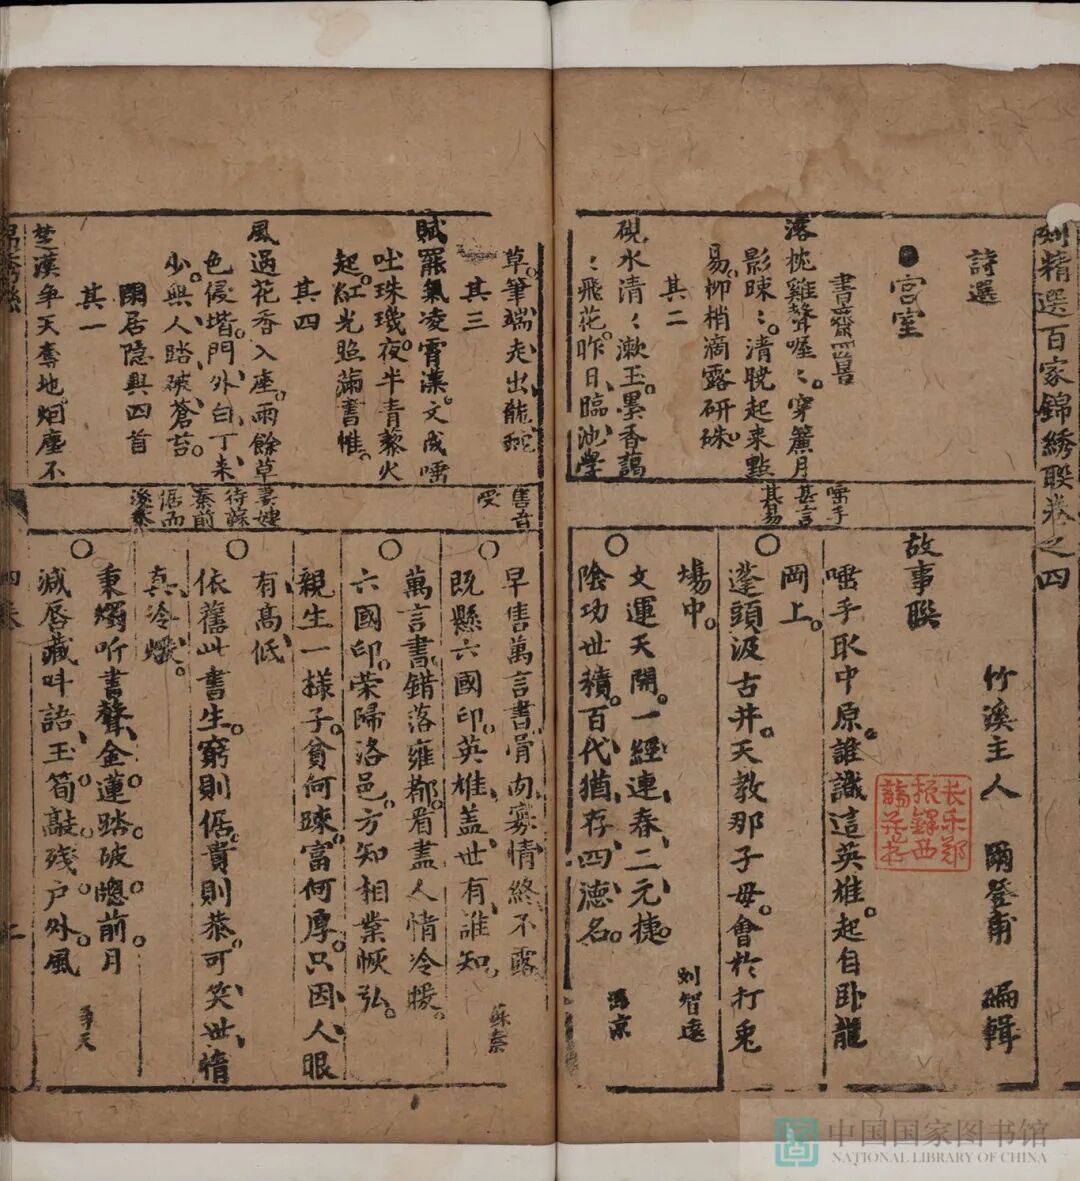 刻精選百家錦綉聯卷之四
詩選
宮室
書齋四咎
落枕雞聲喔〻。穿簾月
影踈〻。清曉起來點
易。柳梢滴露研硃。
其二
硯水清〻漱玉。墨香藹
〻飛花。昨日臨池學
草。筆端走出龍蛇
其三
賦罷氣凌霄漢。文成唾
吐珠璣。夜半青藜火
起。紅光照滿書帷。
其四
風過花香入座。雨餘草
色侵堦。門外白丁来
少。與人踏破蒼苔。
閑居隐興四首
其一
楚漢爭天奪地。烟塵不
唾手
甚言
其易
售音
受
妻嫂
待蘇
秦前
倨而
後恭
竹溪主人 爾登甫 編輯
故事聨
唾手取中原。誰識這英雄。起自臥龍
岡上。
蓬頭汲古井。天教那子母。會於打兎
場中。 刘智遠
文運天開。一經連春、二元捷。
陰功世積。百代猶存四德名。 馮京
早售萬言書。骨肉寡情終不露
既懸六國印。英雄盖世有誰知。 蘇秦
萬言書錯落雍都。看盡人情冷暖。
六國印。荣歸洛邑。方知相業恢弘。
親生一樣子。貧何踈。富何厚。只因人眼
有高低、
依舊此書生。窮則倨。貴則恭。可笑世情
真冷煖。
秉燭听書聲、金蓮踏破牕前月
減唇藏呌語、玉筍敲残户外風
四卷
长乐郑
振铎西
谛藏书
中国国家图书馆
NATIONAL LIBRARY OF CHINA